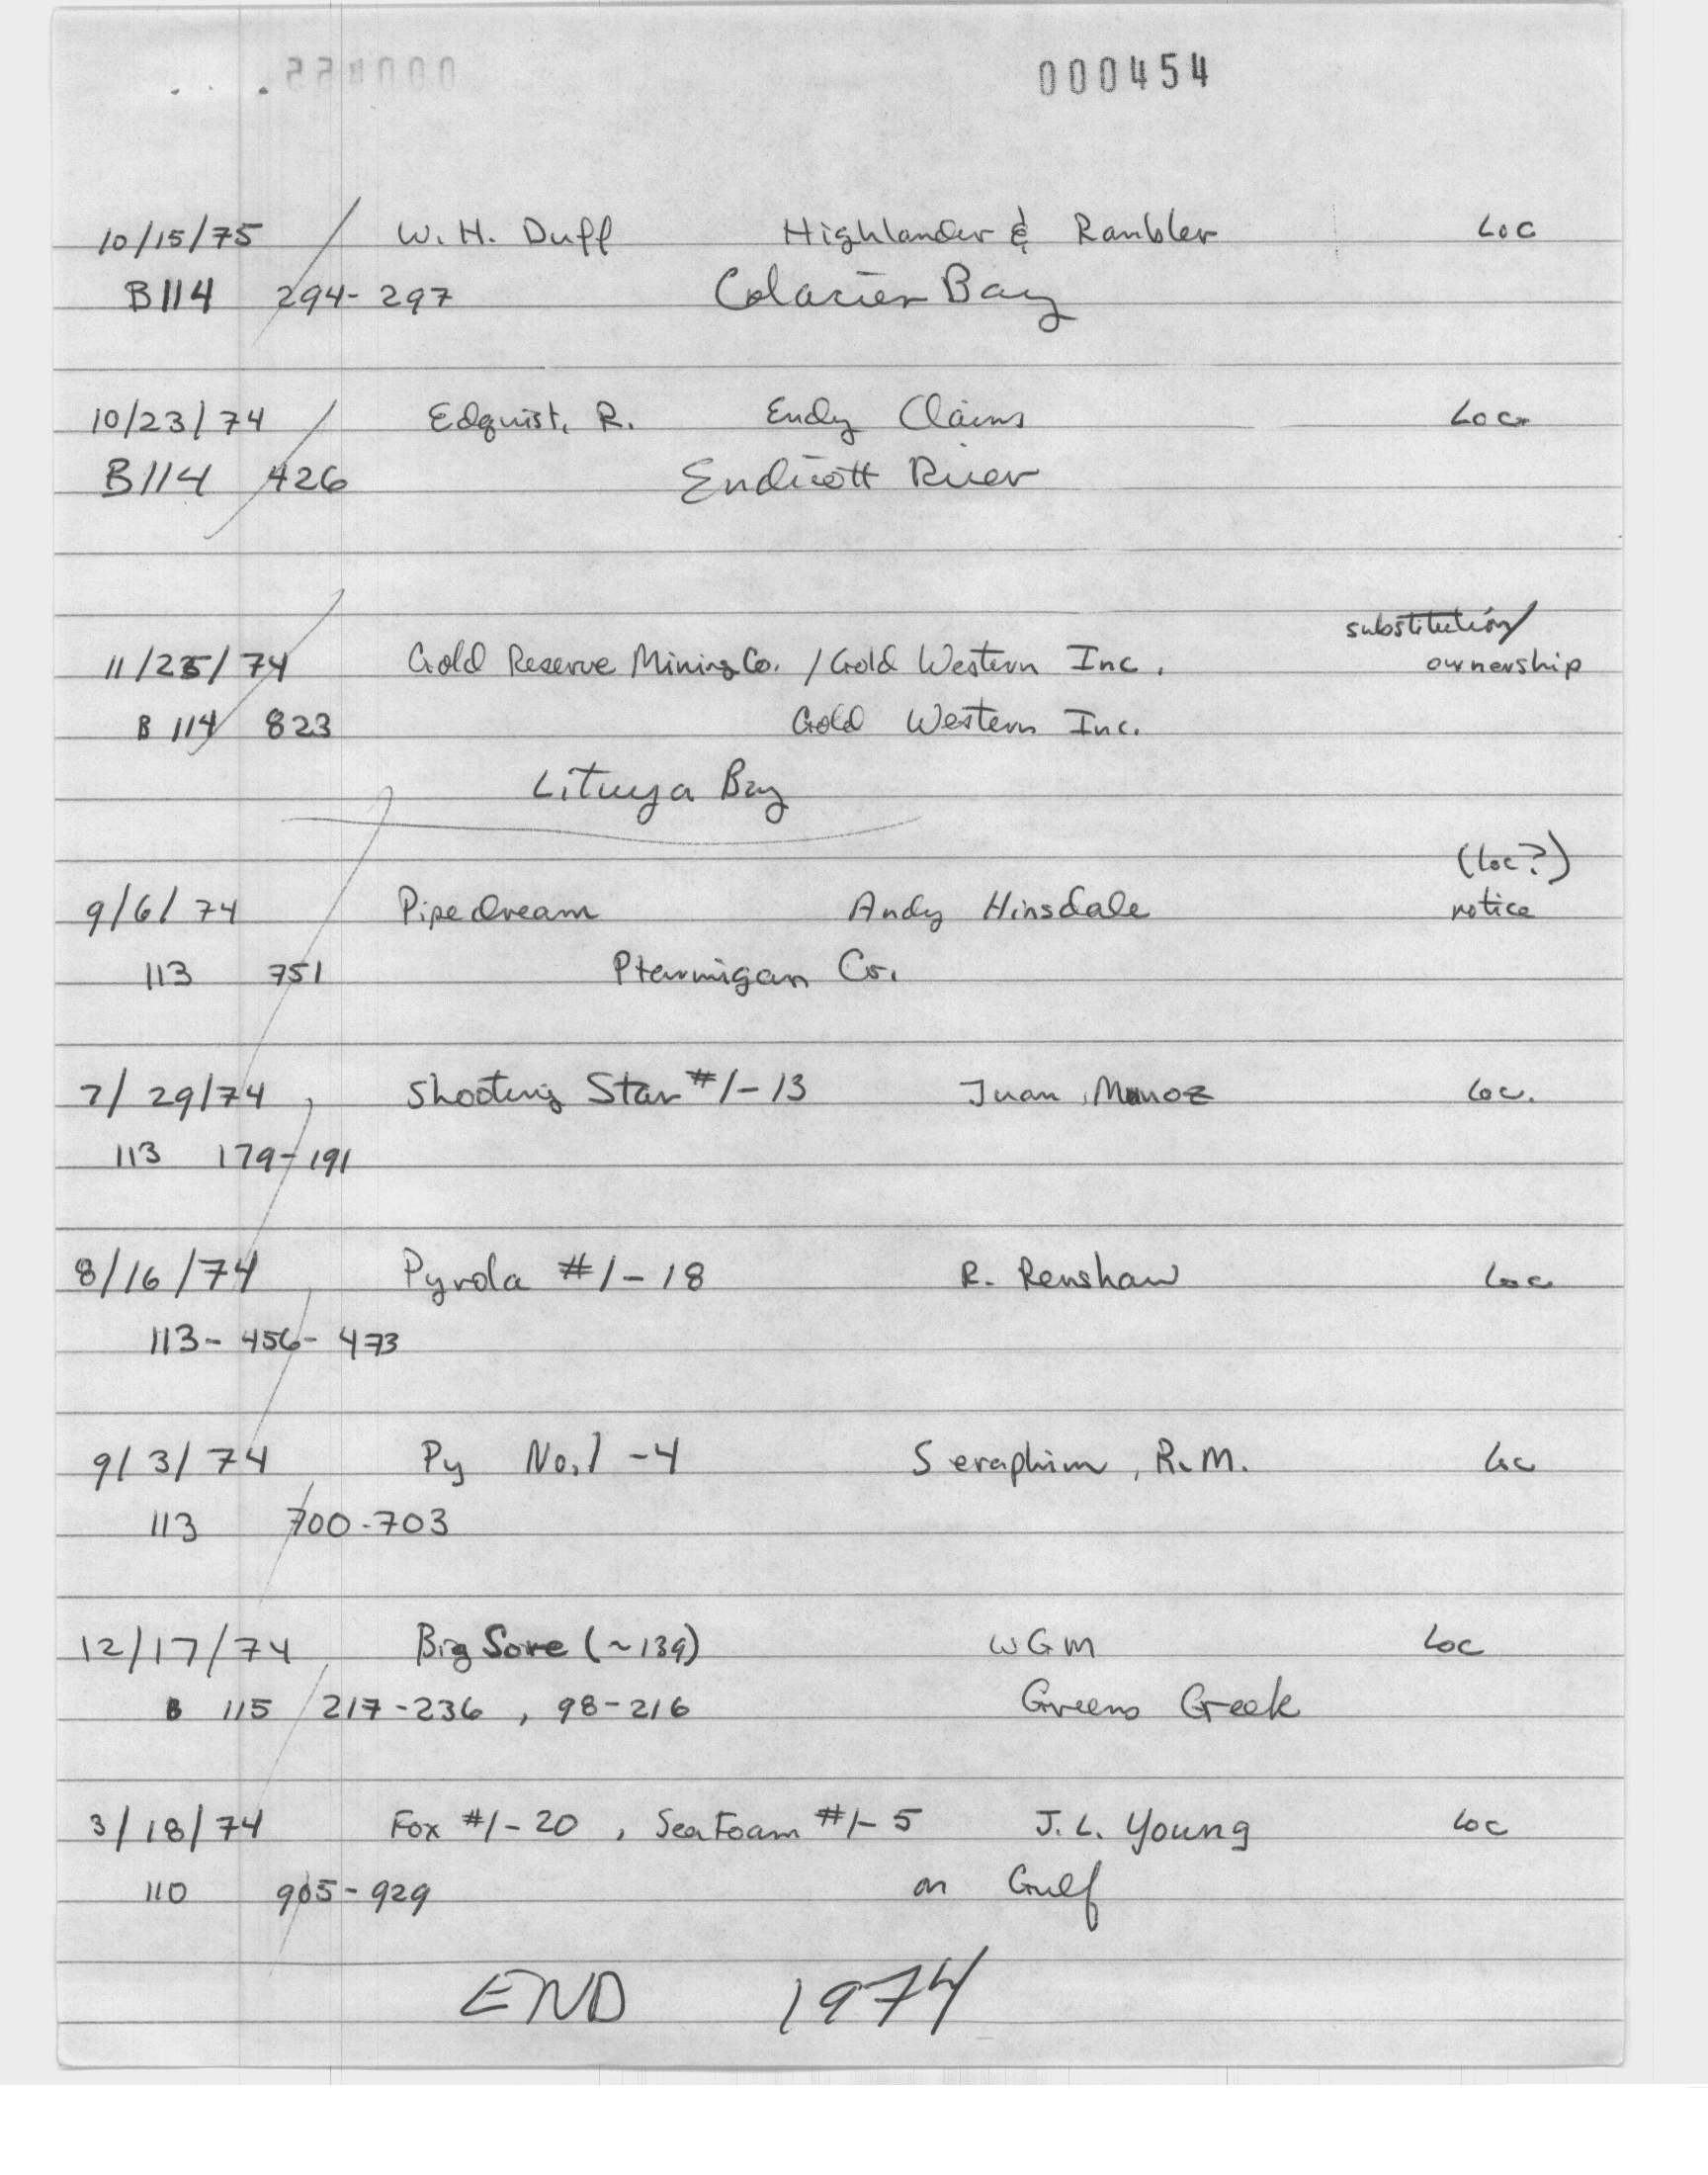 000454
10/15/75 W. H. Duff Highlander & Rambler Loc
B114 294-297 Glacier Bay
10/23/74 Edquist, R. Endy Claims Loc
B114 426 Endicott River
substitution/
11/25/74 Gold Reserve Mining Co. / Gold Western Inc. ownership
B 114 823 Gold Western Inc.
Lituya Bay
(Loc?)
9/6/74 Pipedream Andy Hinsdale notice
113 751 Ptarmigan Co.
7/29/74 Shooting Star #1-13 Juan Munoz Loc.
113 179-191
8/16/74 Pyrola #1-18 R. Renshaw Loc
113-456-473
9/3/74 Py No.1-4 Seraphim, R.M. Loc
113 700-703
12/17/74 Big Sore (~139) WGM Loc
B 115 217-236, 98-216 Greens Creek
3/18/74 Fox #1-20, Sea Foam #1-5 J. L. Young Loc
110 905-929 on Gulf
END 1974